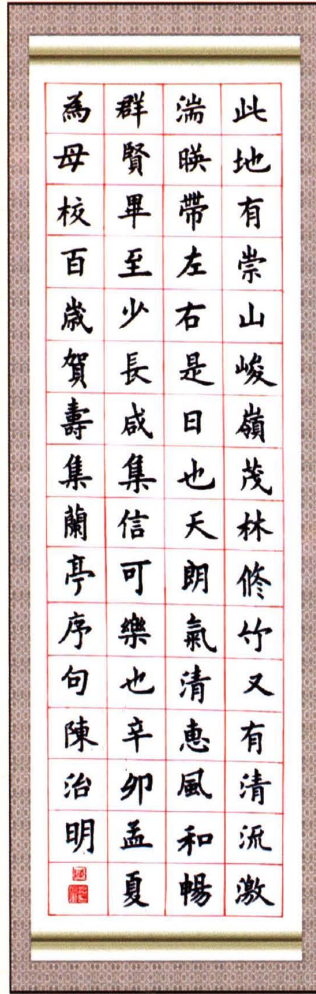 此地有崇山峻嶺茂林修竹又有清流激
湍暎帶左右是日也天朗氣清惠風和暢
群賢畢至少長咸集信可樂也辛卯孟夏
為母校百歲賀壽集蘭亭序句陳治明